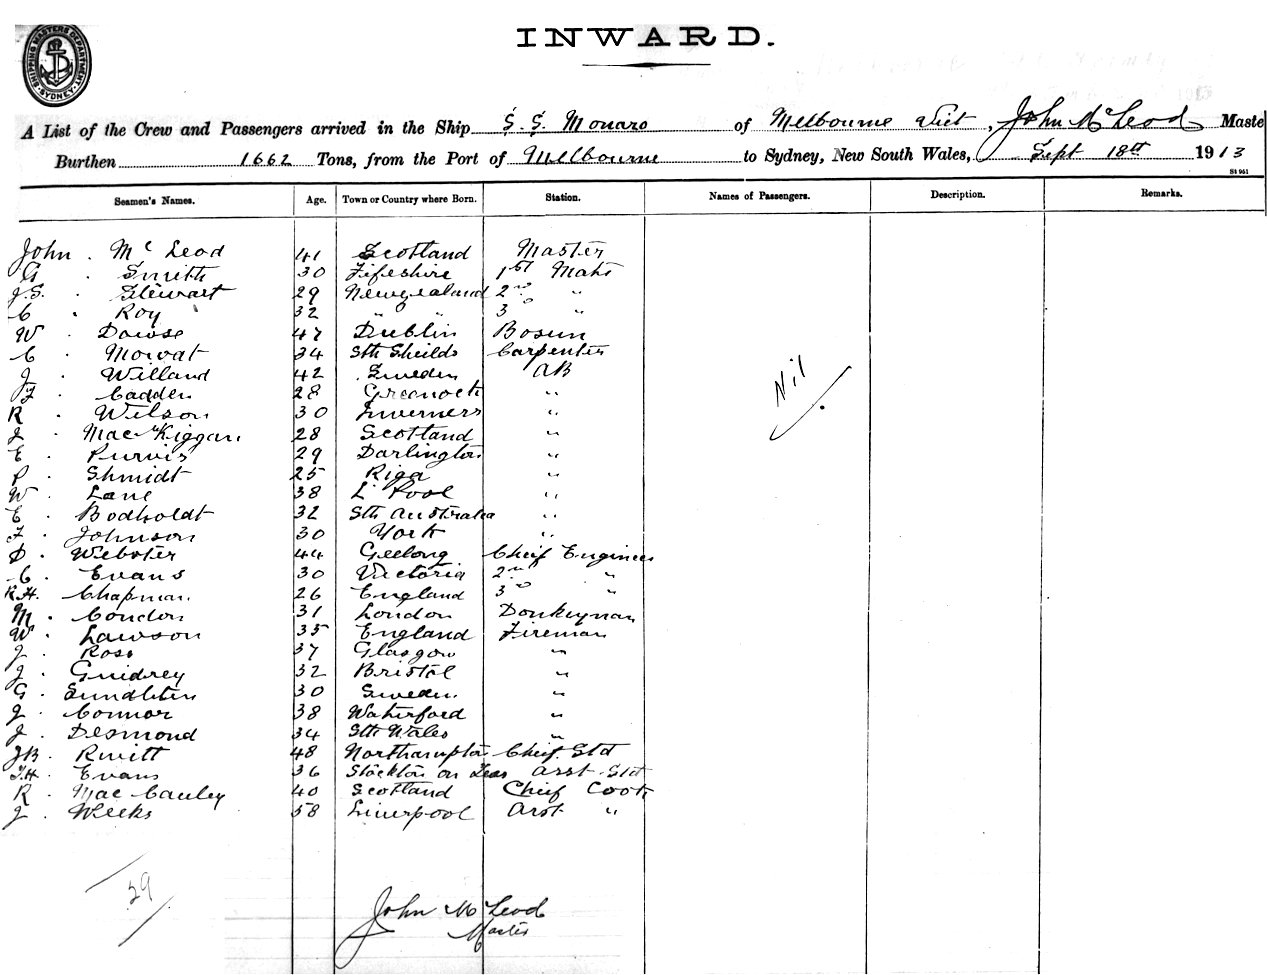 SHIPPING MASTERS DEPARTMENT SYDNEY
INWARD.
A List of the Crew and Passengers arrived in the Ship S.S. Monaro of Melbourne Vict, John McLeod Maste
Burthen 1662 Tons, from the Port of Melbourne to Sydney, New South Wales, Sept 18th 1913
St 951
Seamen's Names. Age. Town or Country where Born. Station. Names of Passengers. Description. Remarks.
John. McLeod 41 Scotland Master
G. Smith 30 Fifeshire 1st Mate
J.S. Stewart 29 Newzealand 2nd "
C. Roy 32 " " 3 "
W. Dowse 47 Dublin Bosun
C. Mowat 34 Sth Sheilds Carpenter
J. Willand 42 Sweden AB
F. Cadden 28 Greenock "
R. Wilson 30 Inverness "
J. MacKiggan 28 Scotland "
E. Purvis 29 Darlington "
P. Shmidt 25 Riga "
W. Lane 38 L'Pool "
E. Bodholdt 32 Sth Australia "
F. Johnson 30 York "
D. Webster 44 Geelong Chief Engineer
C. Evans 30 Victoria 2nd "
R.H. Chapman 26 England 3 "
M. Condon 31 London Donkeyman
W. Lawson 35 England Fireman
J. Ross 37 Glasgow "
J. Guidrey 32 Bristol "
G. 30 Sweden "
J. Connor 38 Waterford "
J. Desmond 34 Sth Wales "
JB. 48 Northampton Chief Std
T.H. Evans 36 Stockton on Tees Asst. Std
R. MacCauley 40 Scotland Chief Cook
J. Weeks 58 Liverpool Asst "
Nil
29
John McLeod
Master